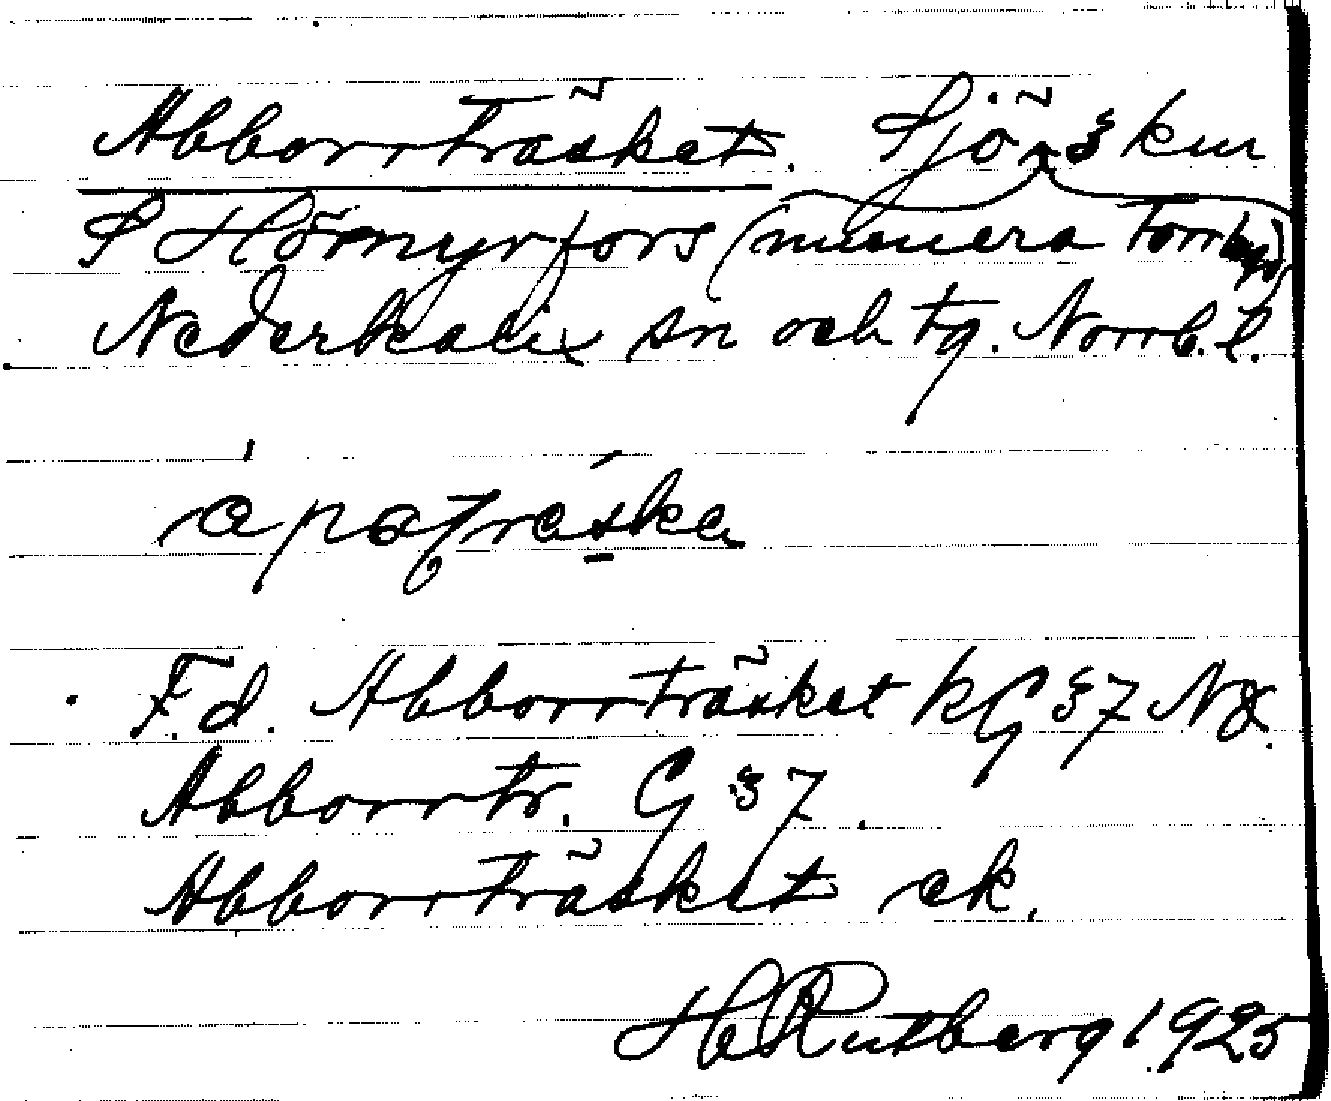 Abborrträsket. Sjö
S Hörnyrfors (numera torrlagd)
Nederkalix sn och tg. Norrb. l.
F. d. Abborrträsket kG 37 N
Abborrtr. G 37.
Abborrträsket ek.
H Rutberg 1925